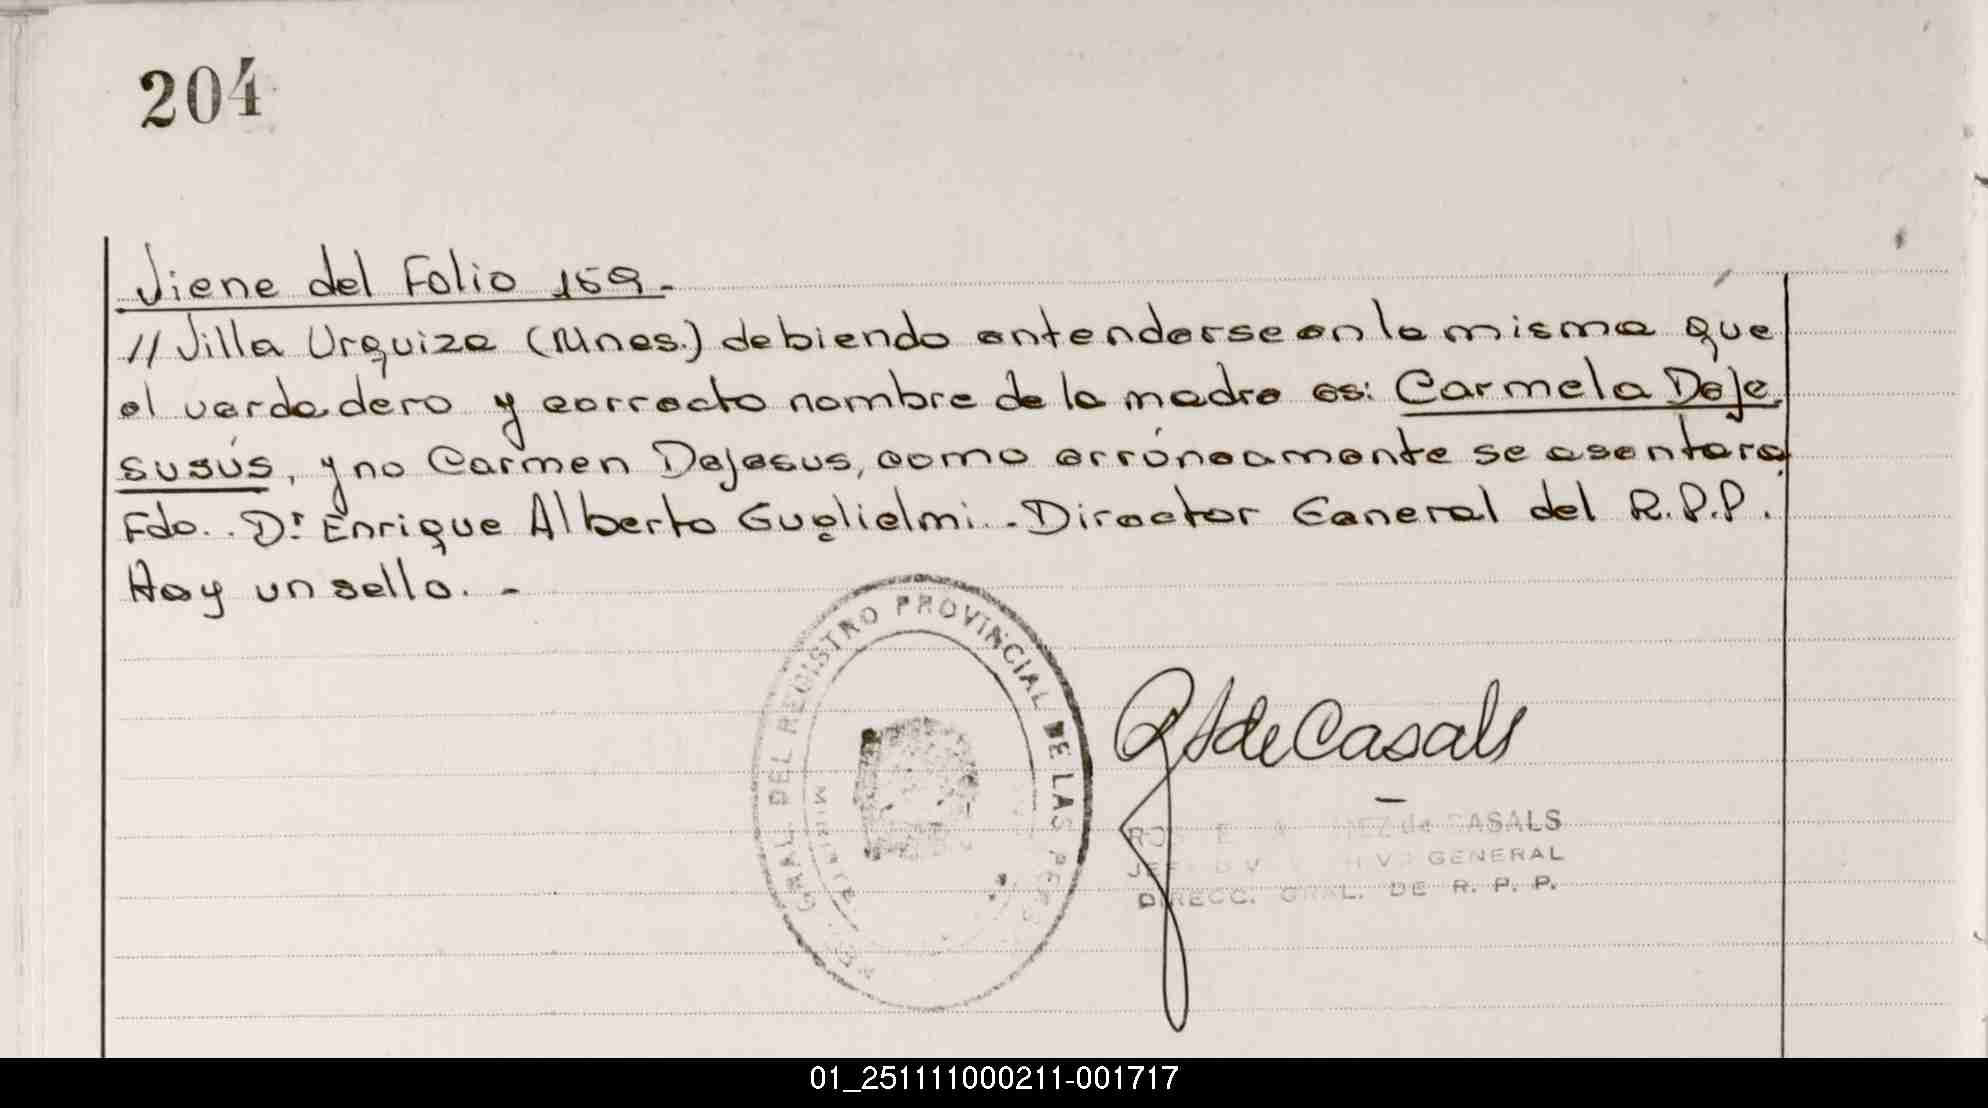 204
Viene del Folio 159.-
// Villa Urquiza (Mnes.) debiendo entenderse en la misma que
el verdadero y correcto nombre de la madre es: Carmela Deje
susús, y no Carmen Dejesus, como erróneamente se asentara.
Fdo.. Dr Enrique Alberto Guglielmi.-Director General del R.P.P.
Hay un sello.-
GRAL. DEL REGISTRO PROVINCIAL DE LAS PERS
de Casals
de CASALS
GENERAL
DIRECC. GRAL. DE R. P. P.
01_251111000211-001717